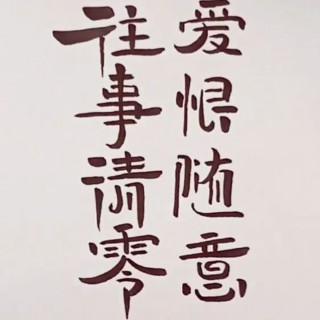 往事清零
爱恨随意